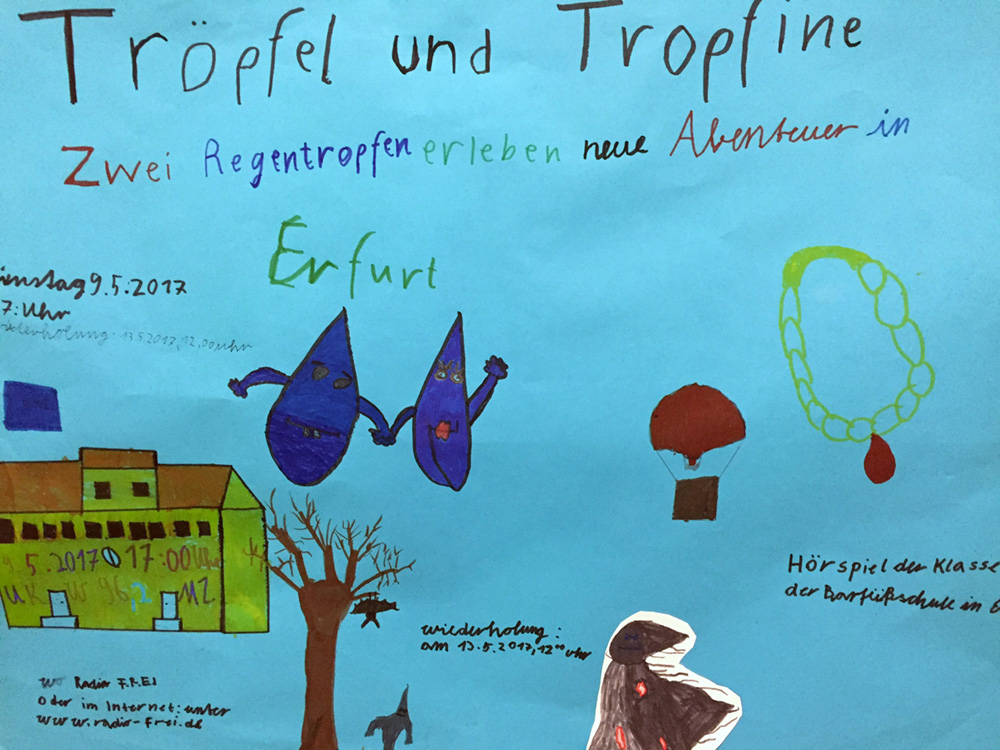 Tröpfel und Tropfine
Zwei Regentropfen erleben neue Abenteuer in
Erfurt
ienstag 9.5.2017
7:Uhr
13.5.2017, 12,00 uhr
9.5.2017 17:00Uhr
UKW 96,2 MZ
wo Radio F.R.E.I
oder im Internet: unter
www.radio-frei.de
wiederholung:
am 13.5.2017, 12⁰⁰ uhr
Hörspiel der Klasse
der Barfüßschule in